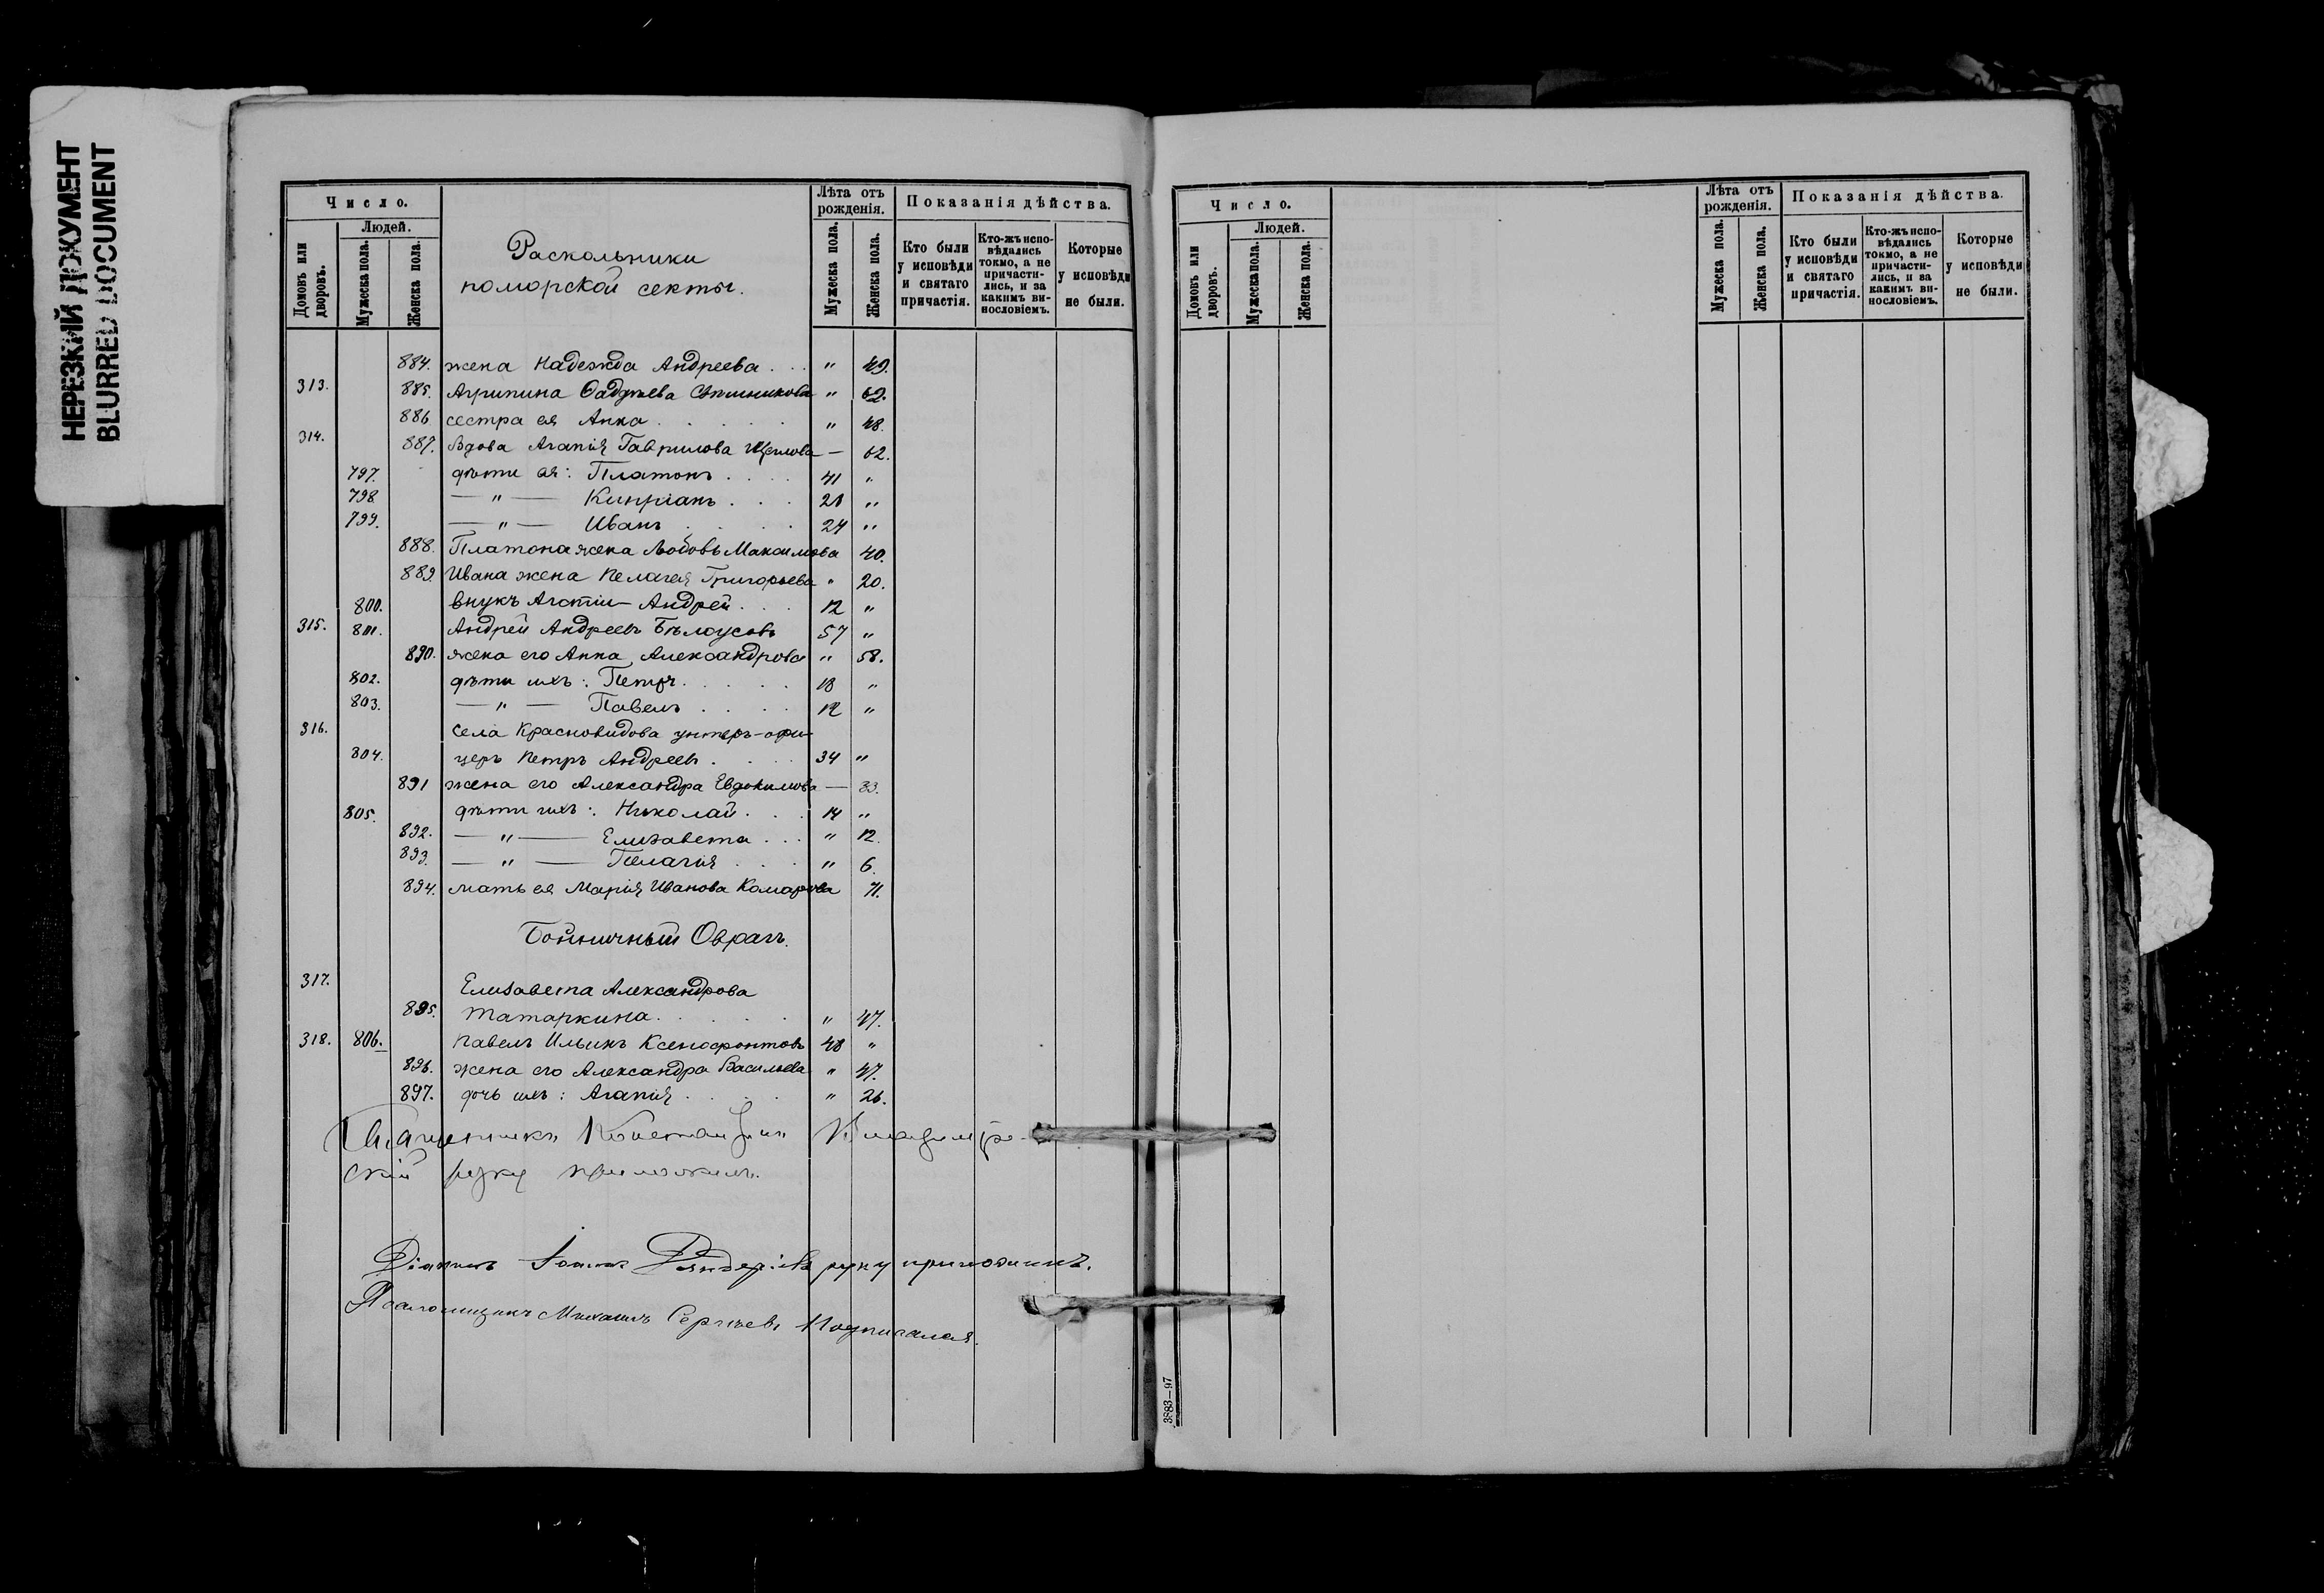 НЕРЕЗКИЙ ДОКУМЕНТ
BLURRED DOCUMENT
Число.
Людей.
Домовъ или дворовъ.
Мужеска пола.
Женска пола.
Раскольники
поморской секты.
Лѣта отъ рожденія.
Мужеска пола.
Женска пола.
Показанія дѣйства.
Кто были у исповѣди и святаго причастія.
Кто-жъ испо-вѣдались токмо, а не причасти-лись, и за какимъ ви-нословіемъ.
Которые у исповѣди не были.
884. жена Надежда Андреева . . . " 49.
313. 885. Агрипина Фадѣева " 62.
886 сестра ея Анна . . . . . " 48.
314. 887. Вдова Агапія Гаврилова — 62.
797. дѣти ея: Платонъ . . . . 41 "
798. — " — Кипріанъ . . . 28 "
799. — " — Иванъ . . . . 24 "
888. Платона жена Любовь Максимова 40.
889. Ивана жена Пелагея Григорьева " 20.
800. внукъ Агапіи — Андрей . . . 12 "
315. 801. Андрей Андреевъ Бѣлоусовъ 57 "
890. жена его Анна Александрова " 58.
802. дѣти ихъ: Петръ . . . . . 18 "
803. — " — Павелъ . . . . 12 "
316. села Красновидова унтеръ-офи-
804. церъ Петръ Андреевъ . . . . 34 "
891 жена его Александра Евдокимова — 33.
805. дѣти ихъ: Николай . . . 14 "
892. — " — Елизавета . . . " 12.
893. — " — Пелагія . . . . " 6.
894. мать ея Марія Иванова Комарова 71.
Бойничный Оврагъ.
317. Елизавета Александрова
895. Татаркина . . . . . . " 47.
318. 806. Павелъ Ильинъ Ксенофонтовъ 48 "
896. жена его Александра Васильева " 47.
897. дочь ихъ: Агапія . . . . " 26.
Священникъ Константинъ Владимір-
скій руку приложилъ.
Діаконъ Іоаннъ руку приложилъ.
Псаломщикъ Михаилъ Сергѣевъ подписался.
Число.
Людей.
Домовъ или дворовъ.
Мужеска пола.
Женска пола.
Лѣта отъ рожденія.
Мужеска пола.
Женска пола.
Показанія дѣйства.
Кто были у исповѣди и святаго причастія.
Кто-жъ испо-вѣдались токмо, а не причасти-лись, и за какимъ ви-нословіемъ.
Которые у исповѣди не были.
3883—97